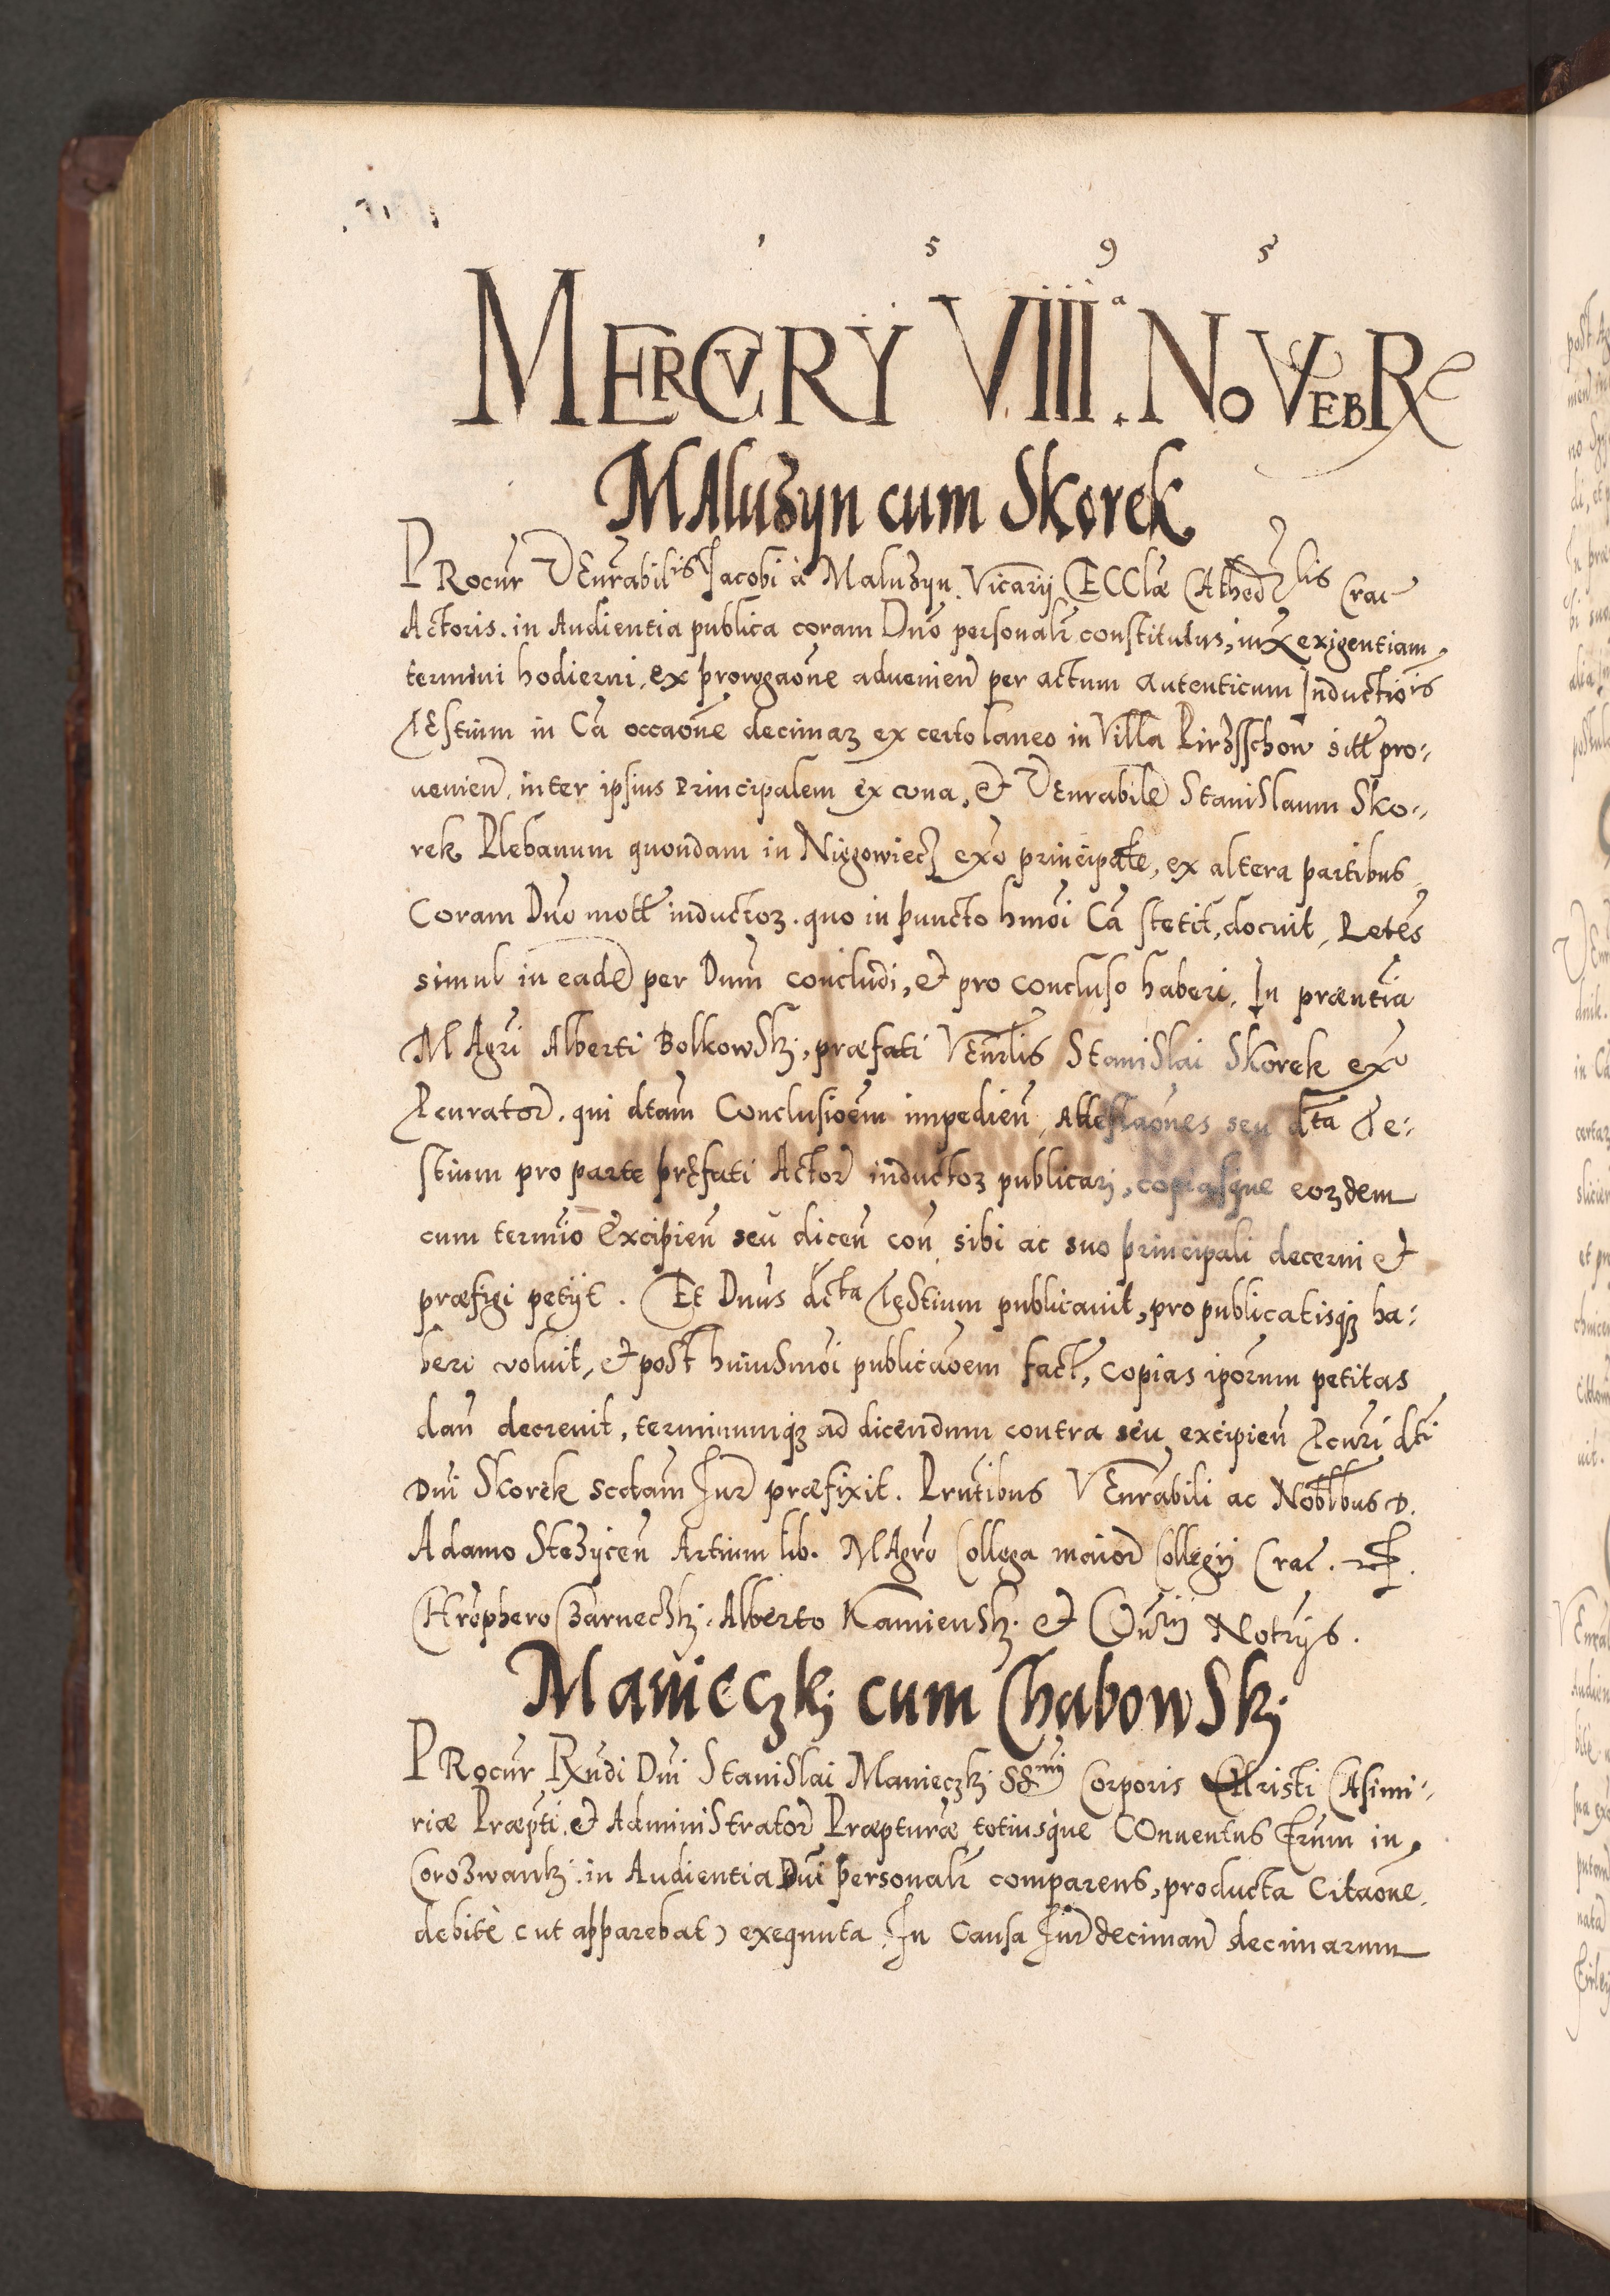 1 5 9 5
MERCVRY VIIII.ª NOVEBRE
MAluzyn cum Skorek
PRocur̃ VEnrabilis Jacobi à Maluzyn Vicarij ECClæ CAthedrlis Crac̃
Actoris. in Audientia publica coram Dño personalr̃ constitutus, iux exigentiam
termini hodierni, ex prorogaoñe aduenieñ per actum autenticum Inductiois
TEstium in Cã occaoñe decimaꝝ ex certo laneo in Villa Pirzsschow sitt̃ pro:
uenieñ. inter ipsius Principalem ex una, et VEnrabilẽ Stanislaum Sko:
rek Plebanum quondam in Niegowiecz exũ principalẽ, ex altera partibus,
Coram Dño mott̃ inductoꝝ. quo in puncto hmõi Cã stetit, docuit, Petẽs
simul in eadẽ per Dnm̃ concludi, et pro concluso haberi. In præntiã
MAgri Alberti Bolkowskj, præfati VEnrlis Stanislai Skorek exũ
Pcuratoris. qui dtam̃ Conclusioem̃ impedieñ, Attestaoñes seu dcta Te:
stium pro parte præfati Actoris inductoꝝ publicarj, copiasque eoꝝdem
cum termio Excipieñ seu diceñ coñ sibi ac suo principali decerni et
præfigi petijt. Et Dnus dcta Testium publicauit, pro publicatisqꝫ ha:
beri voluit, et post huiusmõi publicaoem fact̃, copias ipõrum petitas
dañ decreuit, terminumqꝫ ad dicendum contra seu excipieñ Pcurĩ dti
Dni Skorek scdam Jur̃ præfixit. Prntĩbus VEnrabili ac Nobtbus D.
Adamo Stezyceñ Artium lib. MAgro Collega maior̃ Collegij Crac̃.
CHrophero Czarneczkj, Alberto Kamienskj. et Notrijs.
Manieczkj cum Chabowskj
PRocur̃ Rndi Dni Stanislai Manieczkj SSmi Corporis CHristi CAsimi:
riæ Præpti. et Administrator̃ Præpturæ totiusque COnuentus Frum in
Corozwankj. in Audientia Dni personalr̃ comparens, producta Citaoñe
debitè (ut apparebat) exequuta. In Causa Jur̃ decimañ decimarum